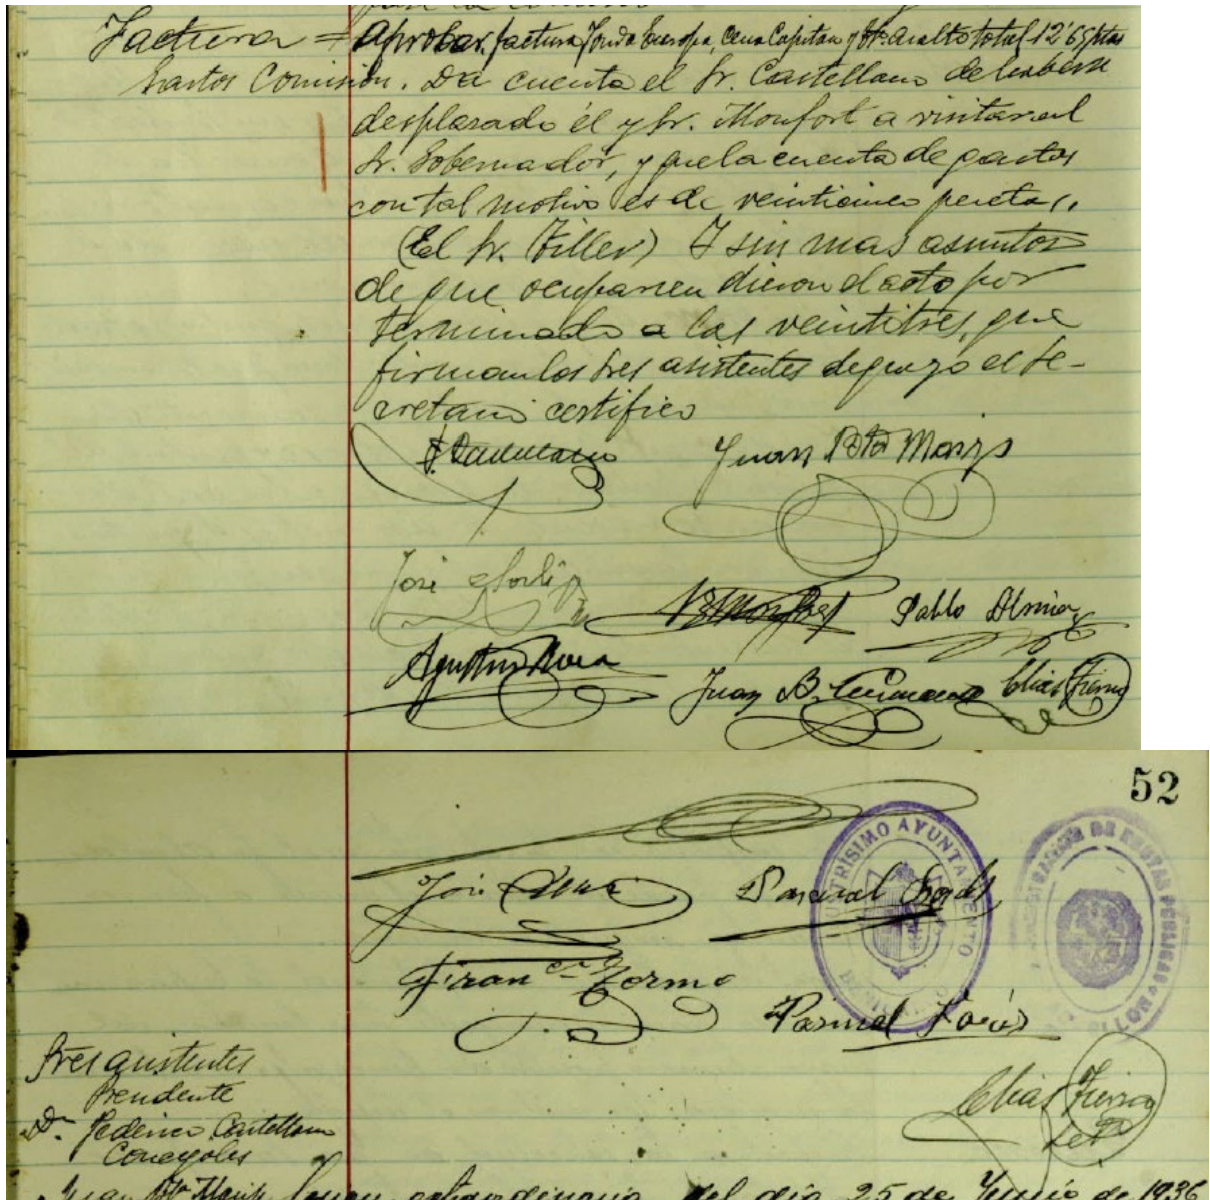 Factura = aprobar factura Fonda Europa, cena Capitan y Sr. Aralto total 12'65 ptas
Gastos Comisión. Da cuenta el Sr. Castellano de haberse
desplazado él y Sr. Monfort a visitar al
Sr. Gobernador, y que la cuenta de gastos
con tal motivo es de veinticinco pesetas.
(El Sr. Tiller) Y sin mas asuntos
de que ocuparse dieron el acto por
terminado a las veintitres, que
firman los Sres asistentes de que yo el Se-
cretario certifico
F. Castellano Juan Bta Marzo
José
Pablo
Agustin Juan B. Elias Fierro
52
ILUSTRISIMO AYUNTAMIENTO
José Pascual
Franco Tormo
Pascual
Sres asistentes
Presidente
Dn. Federico Castellano
Elias Fierro
Concejales
Juan Bta Marzo Sesion extraordinaria del dia 25 de Junio de 1936